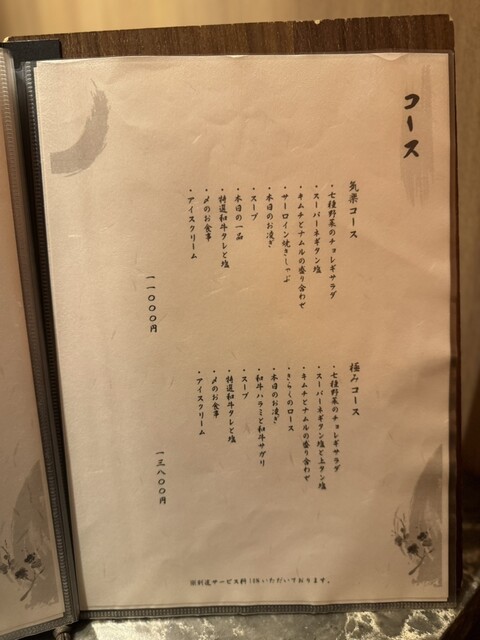 コース
気楽コース
・七種野菜のチョレギサラダ
・スーパーネギタン塩
・キムチとナムルの盛り合わせ
・サーロイン焼きしゃぶ
・本日のお凌ぎ
・スープ
・本日の一品
・特選和牛タレと塩
・〆のお食事
・アイスクリーム
一一〇〇〇円
極みコース
・七種野菜のチョレギサラダ
・スーパーネギタン塩と上タン塩
・キムチとナムルの盛り合わせ
・きらくのロース
・本日のお凌ぎ
・和牛ハラミと和牛サガリ
・スープ
・特選和牛タレと塩
・〆のお食事
・アイスクリーム
一三八〇〇円
※別途サービス料10%いただいております。